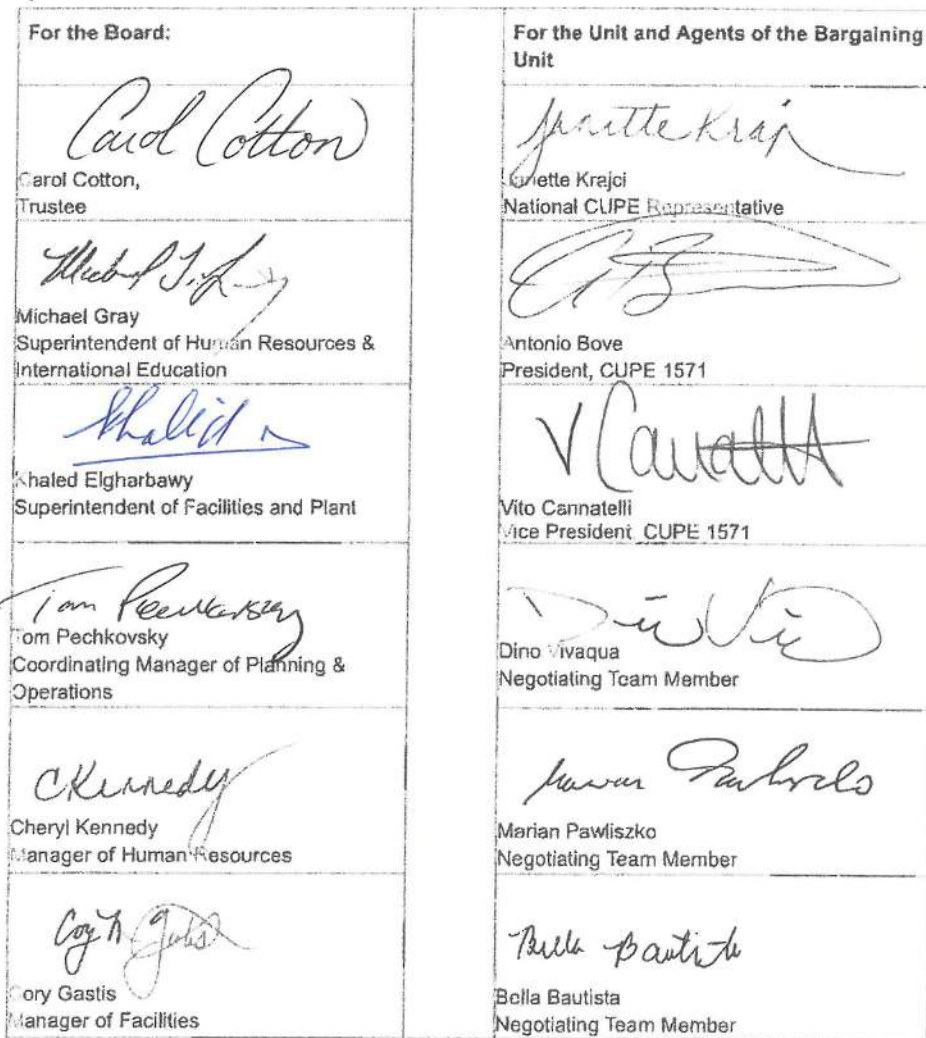 For the Board:
Carol Cotton
Carol Cotton,
Trustee
Michael Gray
Superintendent of Human Resources &
International Education
Khalid
Khaled Elgharbawy
Superintendent of Facilities and Plant
Tom Pechkovsky
Tom Pechkovsky
Coordinating Manager of Planning &
Operations
CKennedy
Cheryl Kennedy
Manager of Human Resources
Cory Gastis
Manager of Facilities
For the Unit and Agents of the Bargaining
Unit
Janette Kraj
Janette Krajci
National CUPE Representative
Antonio Bove
President, CUPE 1571
V Cannatelli
Vito Cannatelli
Vice President CUPE 1571
Dino Vivaqua
Negotiating Team Member
Marian Pawliszko
Negotiating Team Member
Bella Bautista
Bella Bautista
Negotiating Team Member